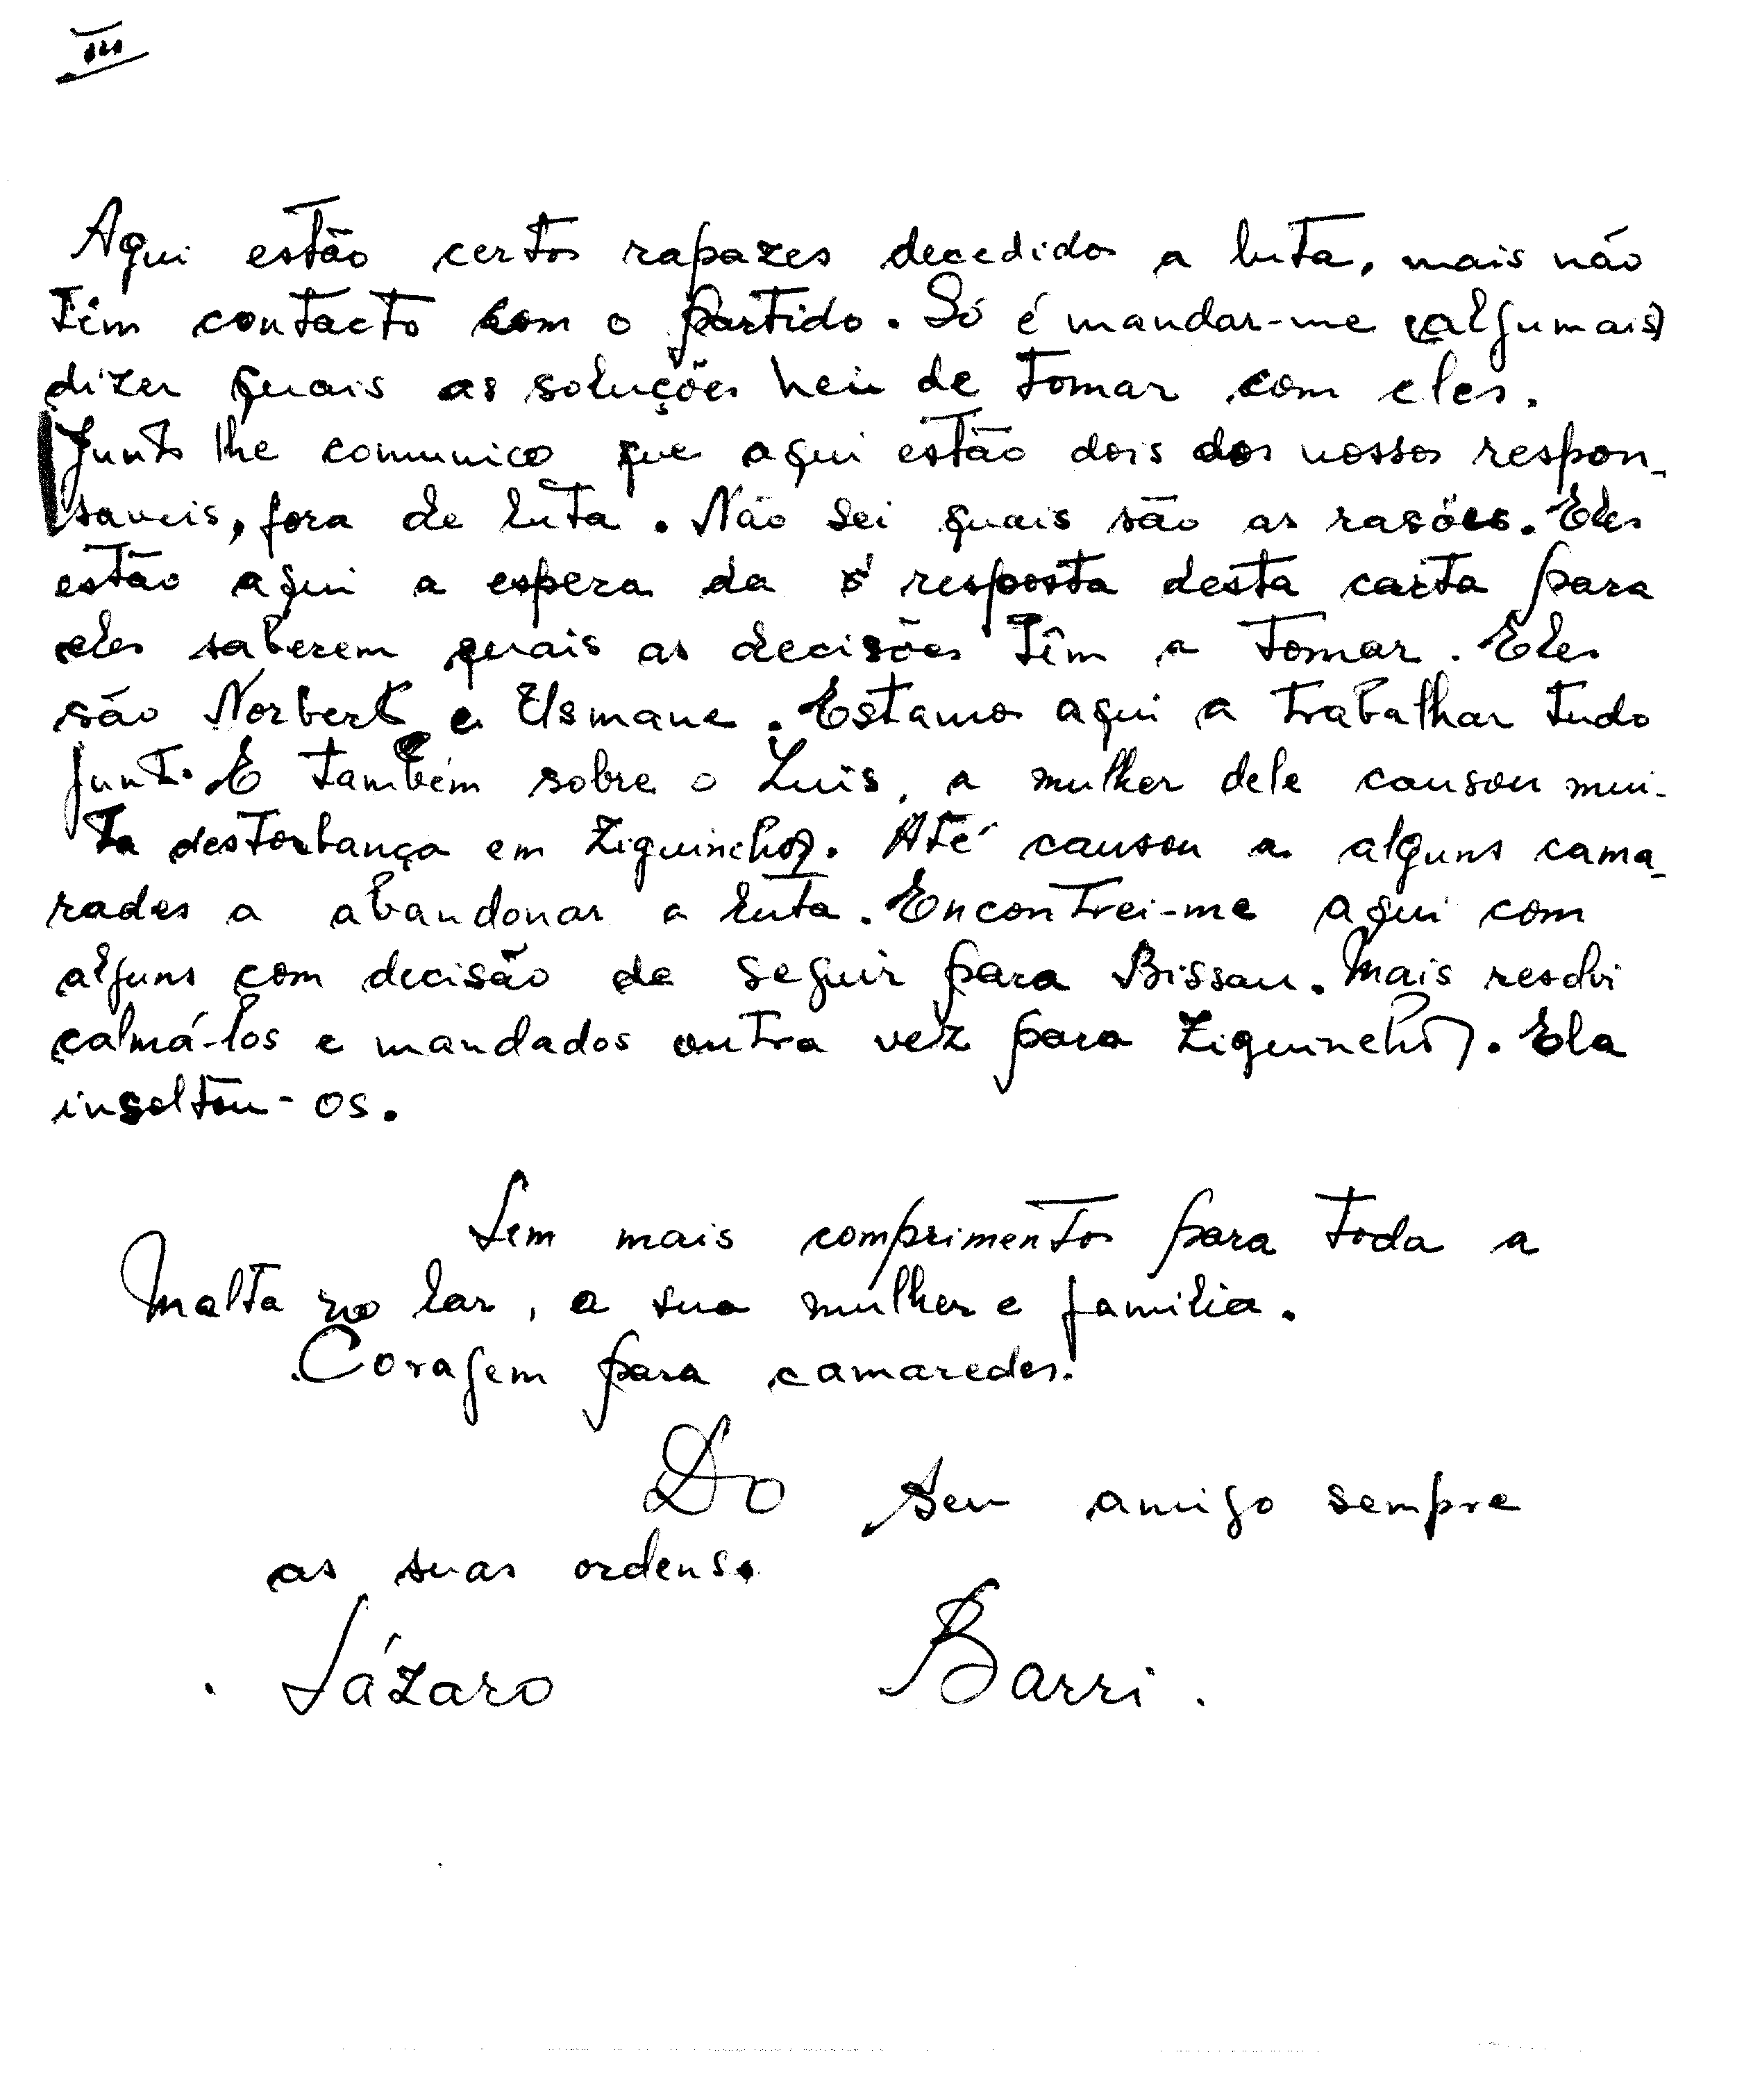 III
Aqui estão certos rapazes decedidos a luta, mais não
têm contacto com o partido. Só é mandar-me (algumais)
dizer quais as soluções hei de tomar com eles.
Junto lhe comunico que aqui estão dois dos nossos respon-
saveis, fora de luta. Não sei quais são as rasões. Eles
estão aqui a espera da resposta desta carta para
eles saberem quais as decisões têm a tomar. Eles
são Norberto e Usmane. Estamos aqui a trabalhar tudo
junto. E também sobre o Luis, a mulher dele causou mui-
ta destorbança em Ziguinchor. Até causou a alguns cama-
rades a abandonar a luta. Encontrei-me aqui com
alguns com decisão de seguir para Bissau. Mais resolvi
calmá-los e mandados outra vez para Ziguinchor. Ela
insoltou-os.
Sem mais comprimentos para toda a
Malta no lar, a sua mulher e familia.
Coragem para camaredes.
Do seu amigo sempre
as suas ordens.
Lázaro Barri.